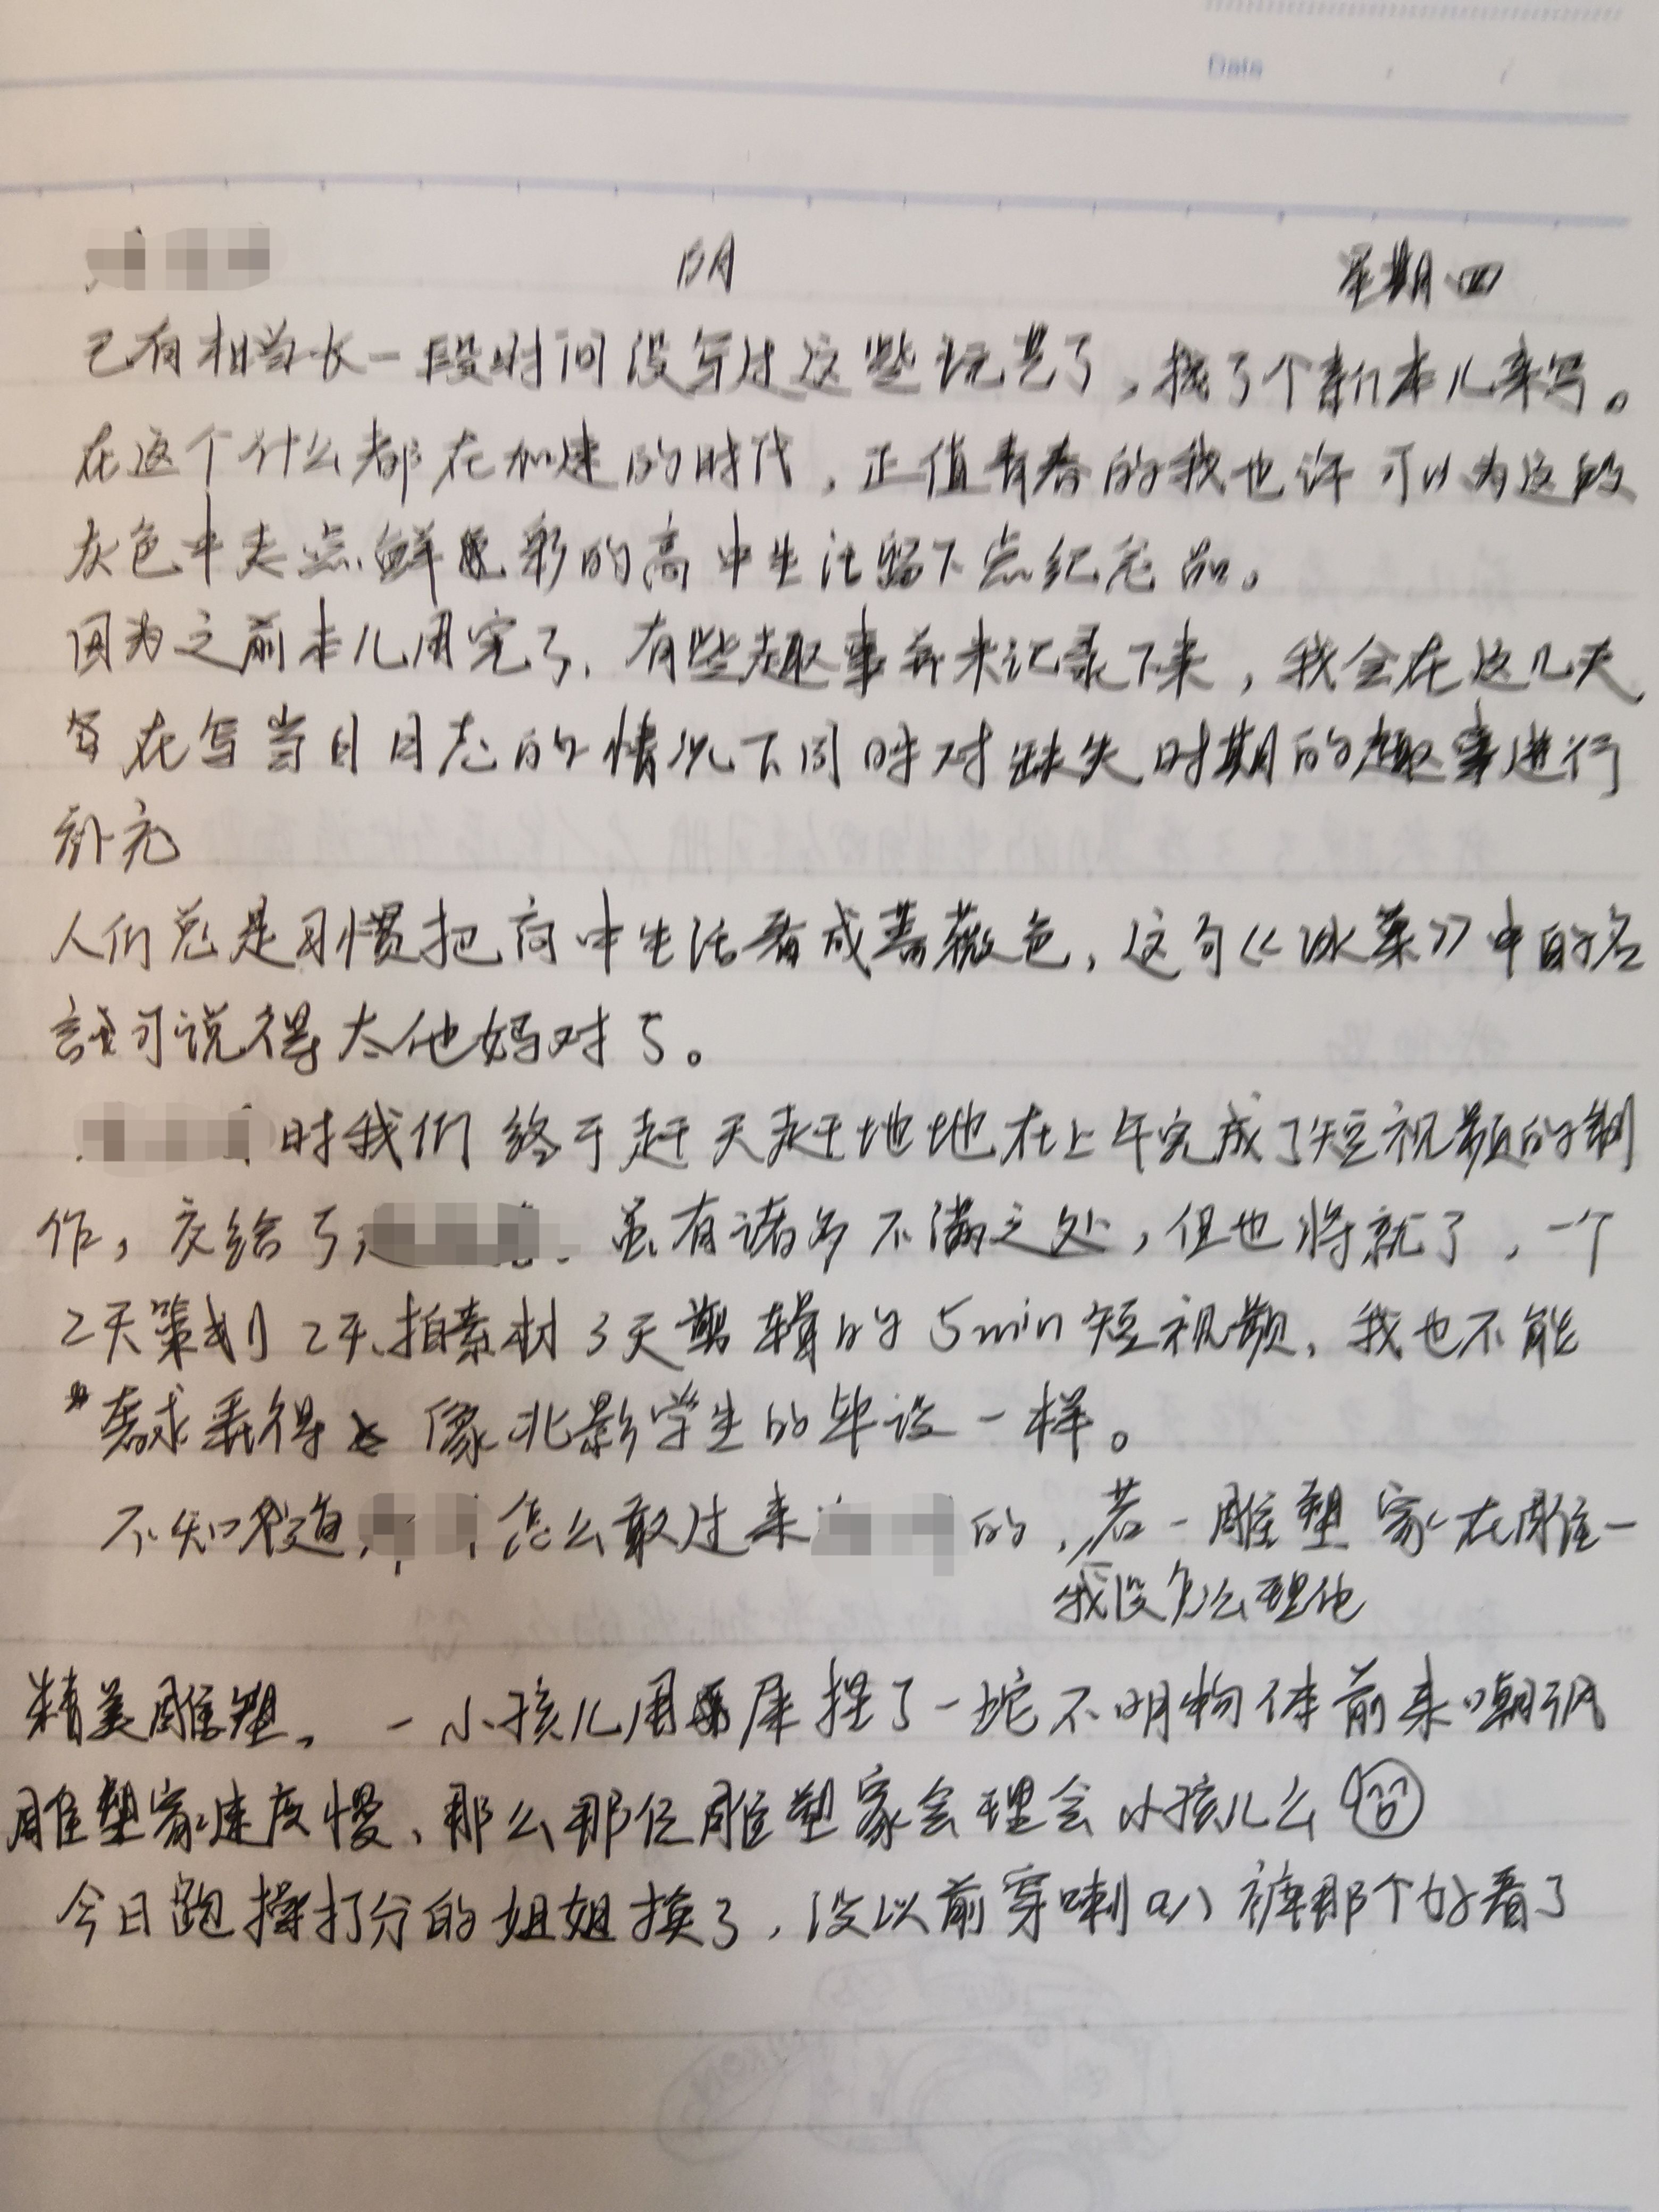 Date
阴 星期四
已有相当长一段时间没写过这些玩艺了，找了个新本儿来写。
在这个什么都在加速的时代，正值青春的我也许可以为这段
灰色中夹点鲜彩的高中生活留下点纪念品。
因为之前本儿用完了，有些趣事并未记录下来，我会在这几天
在写当日日志的情况下同时对缺失时期的趣事进行
补充
人们总是习惯把高中生活看成蔷薇色，这句《冰菓》中的名
言可说得太他妈对了。
时我们终于赶天赶地地在上午完成了短视频的制
作，交给了 虽有诸多不满之处，但也将就了，一个
2天策划2天拍素材3天剪辑的5min短视频，我也不能
求弄得像北影学生的毕设一样。
不知道 怎么敢过来 的，若一雕塑家在雕一
我没怎么理他
精美雕塑。一小孩儿用屎捏了一坨不明物体前来嘲讽
雕塑家速度慢，那么那位雕塑家会理会小孩儿么
今日跑操打分的姐姐换了，没以前穿喇叭裤那个好看了